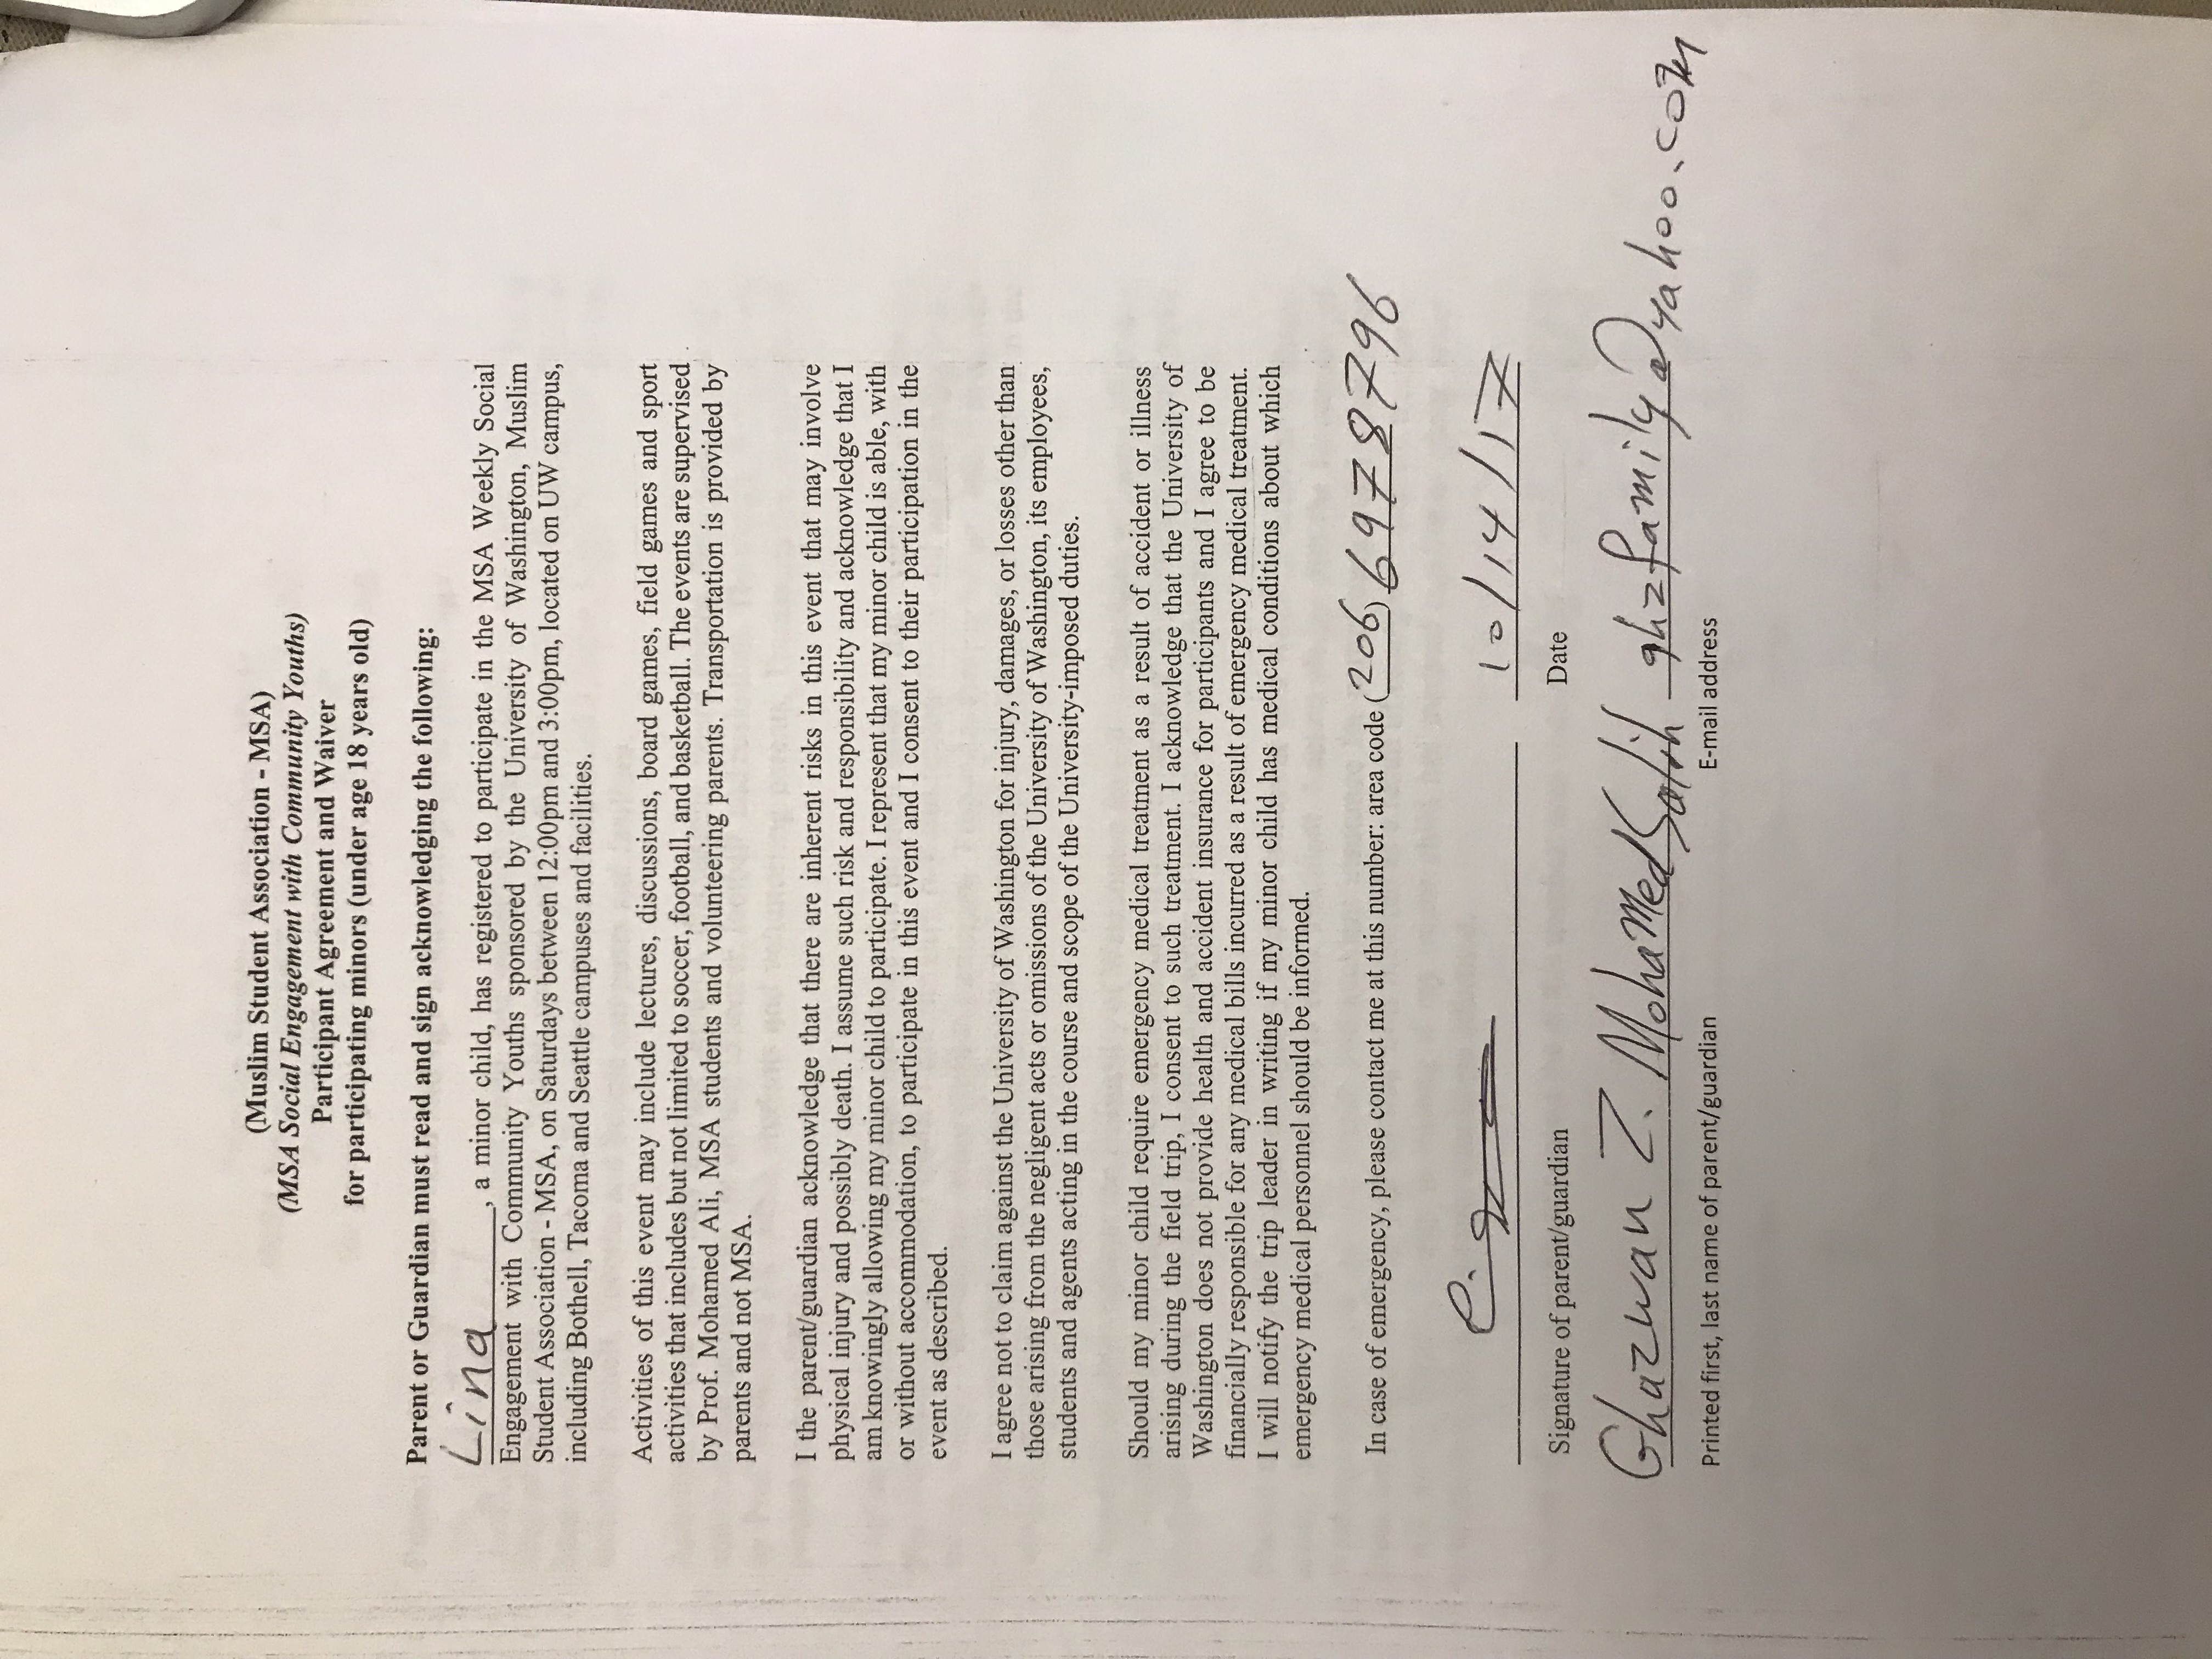 (Muslim Student Association - MSA)
(MSA Social Engagement with Community Youths)
Participant Agreement and Waiver
for participating minors (under age 18 years old)
Parent or Guardian must read and sign acknowledging the following:
Lina, a minor child, has registered to participate in the MSA Weekly Social
Engagement with Community Youths sponsored by the University of Washington, Muslim
Student Association - MSA, on Saturdays between 12:00pm and 3:00pm, located on UW campus,
including Bothell, Tacoma and Seattle campuses and facilities.
Activities of this event may include lectures, discussions, board games, field games and sport
activities that includes but not limited to soccer, football, and basketball. The events are supervised
by Prof. Mohamed Ali, MSA students and volunteering parents. Transportation is provided by
parents and not MSA.
I the parent/guardian acknowledge that there are inherent risks in this event that may involve
physical injury and possibly death. I assume such risk and responsibility and acknowledge that I
am knowingly allowing my minor child to participate. I represent that my minor child is able, with
or without accommodation, to participate in this event and I consent to their participation in the
event as described.
I agree not to claim against the University of Washington for injury, damages, or losses other than
those arising from the negligent acts or omissions of the University of Washington, its employees,
students and agents acting in the course and scope of the University-imposed duties.
Should my minor child require emergency medical treatment as a result of accident or illness
arising during the field trip, I consent to such treatment. I acknowledge that the University of
Washington does not provide health and accident insurance for participants and I agree to be
financially responsible for any medical bills incurred as a result of emergency medical treatment.
I will notify the trip leader in writing if my minor child has medical conditions about which
emergency medical personnel should be informed.
In case of emergency, please contact me at this number: area code (206) 6978796
10/14/17
Signature of parent/guardian Date
Ghazwan Z. MohamedSalih ghzfamily@yahoo.com
Printed first, last name of parent/guardian E-mail address